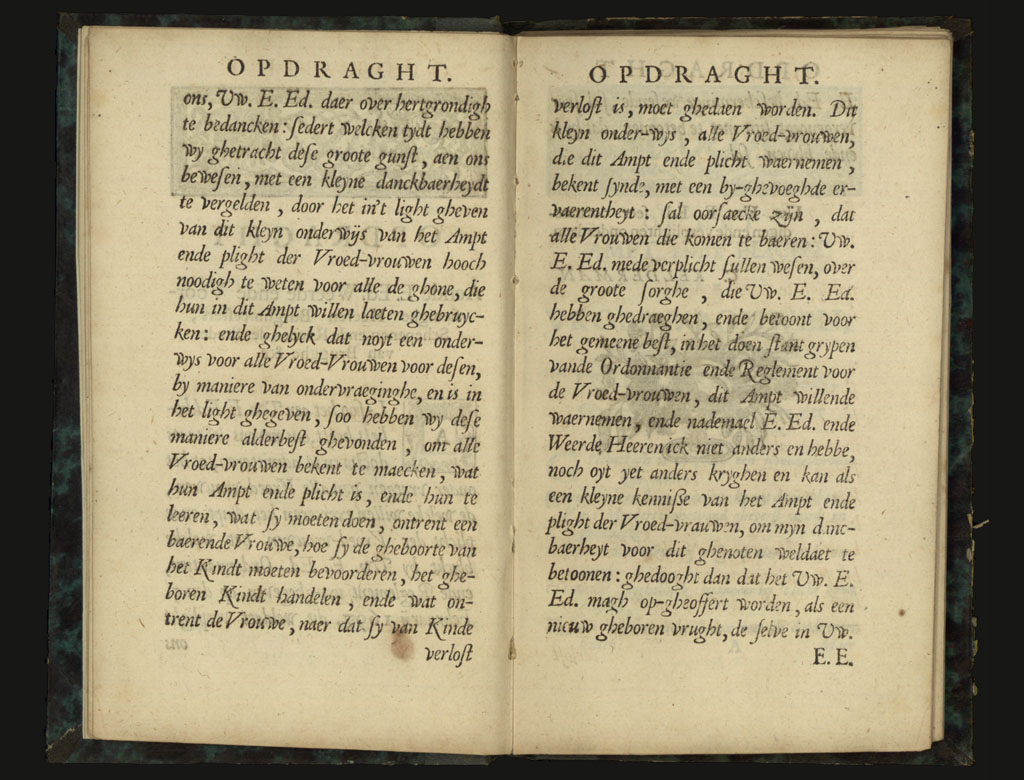 OPDRAGHT.
ons, Uw. E. Ed. daer over hertgrondigh
te bedancken: ſedert welcken tydt hebben
wy ghetracht deſe groote gunſt, aen ons
beweſen, met een kleyne danckbaerheydt
te vergelden, door het in't light gheven
van dit kleyn onderwijs van het Ampt
ende plight der Vroed-vrouwen hooch
noodigh te weten voor alle de ghone, die
hun in dit Ampt willen laeten ghebruyc-
ken: ende ghelyck dat noyt een onder-
wys voor alle Vroed-Vrouwen voor deſen,
by maniere van ondervraeginghe, en is in
het light ghegeven, ſoo hebben wy deſe
maniere alderbeſt ghevonden, om alle
Vroed-vrouwen bekent te maecken, wat
hun Ampt ende plicht is, ende hun te
leeren, wat ſy moeten doen, ontrent een
baerende Vrouwe, hoe ſy de gheboorte van
het Kindt moeten bevoorderen, het ghe-
boren Kindt handelen, ende wat on-
trent de Vrouwe, naer dat ſy van Kinde
verloſt
OPDRAGHT.
verloſt is, moet ghedaen worden. Dit
kleyn onder-wys, alle Vroed-vrouwen,
die dit Ampt ende plicht waernemen,
bekent ſynde, met een by-ghevoeghde er-
vaerentheyt: ſal oorſaecke zijn, dat
alle Vrouwen die komen te baeren: Uw.
E. Ed. mede verplicht ſullen weſen, over
de groote ſorghe, die Uw. E. Ed.
hebben ghedraeghen, ende betoont voor
het gemeene beſt, in het doen ſtant grypen
vande Ordonnantie ende Reglement voor
de Vroed-vrouwen, dit Ampt willende
waernemen, ende nademael E. Ed. ende
Weerde Heeren ick niet anders en hebbe,
noch oyt yet anders kryghen en kan als
een kleyne kenniſſe van het Ampt ende
plight der Vroed-vrauwen, om myn danc-
baerheyt voor dit ghenoten weldaet te
betoonen: ghedooght dan dat het Uw. E.
Ed. magh op-gheoffert worden, als een
nieuw gheboren vrught, de ſelve in Uw.
E. E.